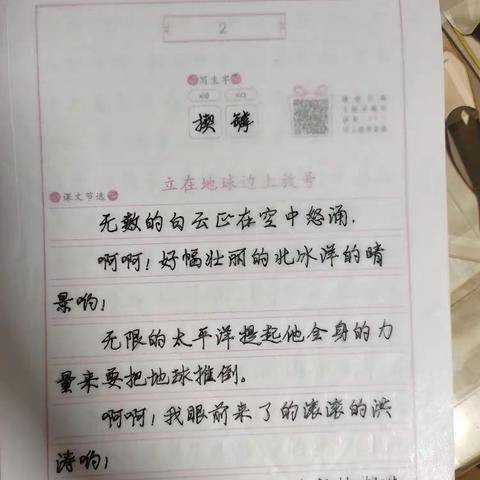 2
写生字
立在地球边上放号
课文节选
无数的白云正在空中怒涌,
啊啊!好幅壮丽的北冰洋的晴
景哟!
无限的太平洋提起他全身的力
量来要把地球推倒。
啊啊!我眼前来了的滚滚的洪
涛哟!